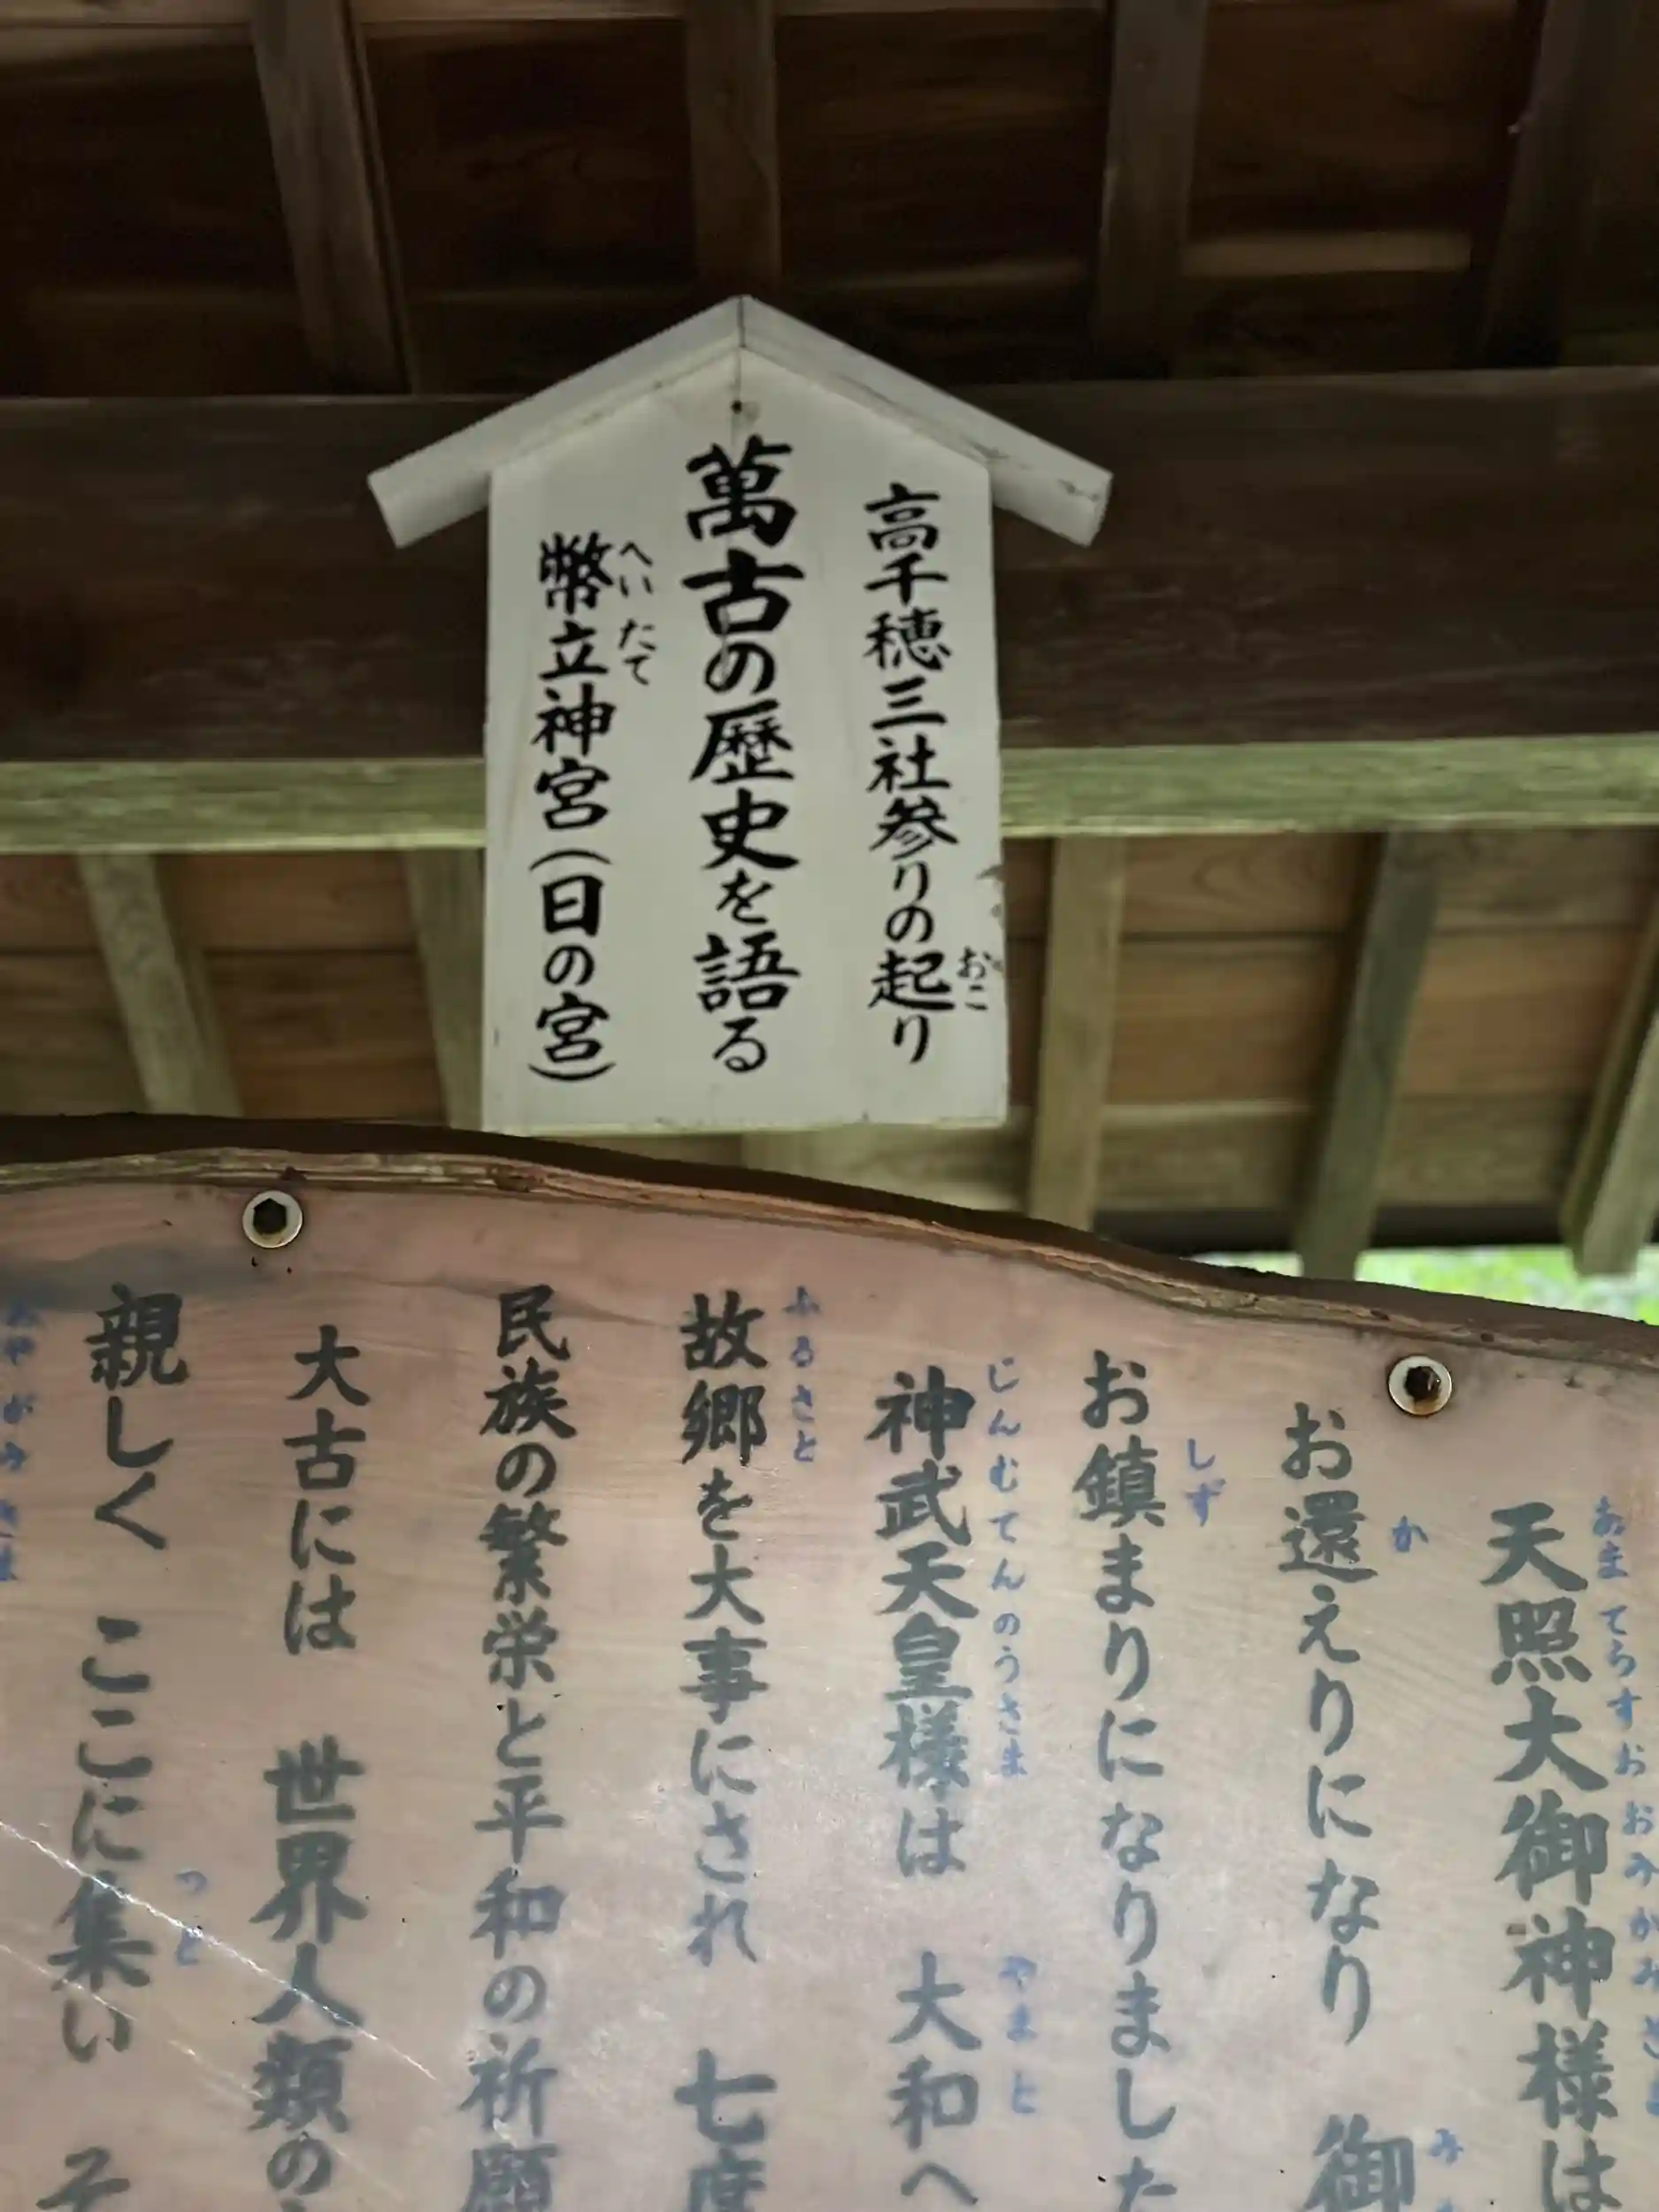 高千穂三社参りの起り
おこ
萬古の歴史を語る
幣立神宮(日の宮)
へいたて
天照大御神様は
あまてらすおおみかみさま
お還えりになり 御
か
み
お鎮まりになりました
しず
神武天皇様は 大和へ
じんむてんのうさま
やまと
故郷を大事にされ 七度
ふるさと
民族の繁栄と平和の祈願
大古には 世界人類の
親しく ここに集い そ
つど
おやがみさま